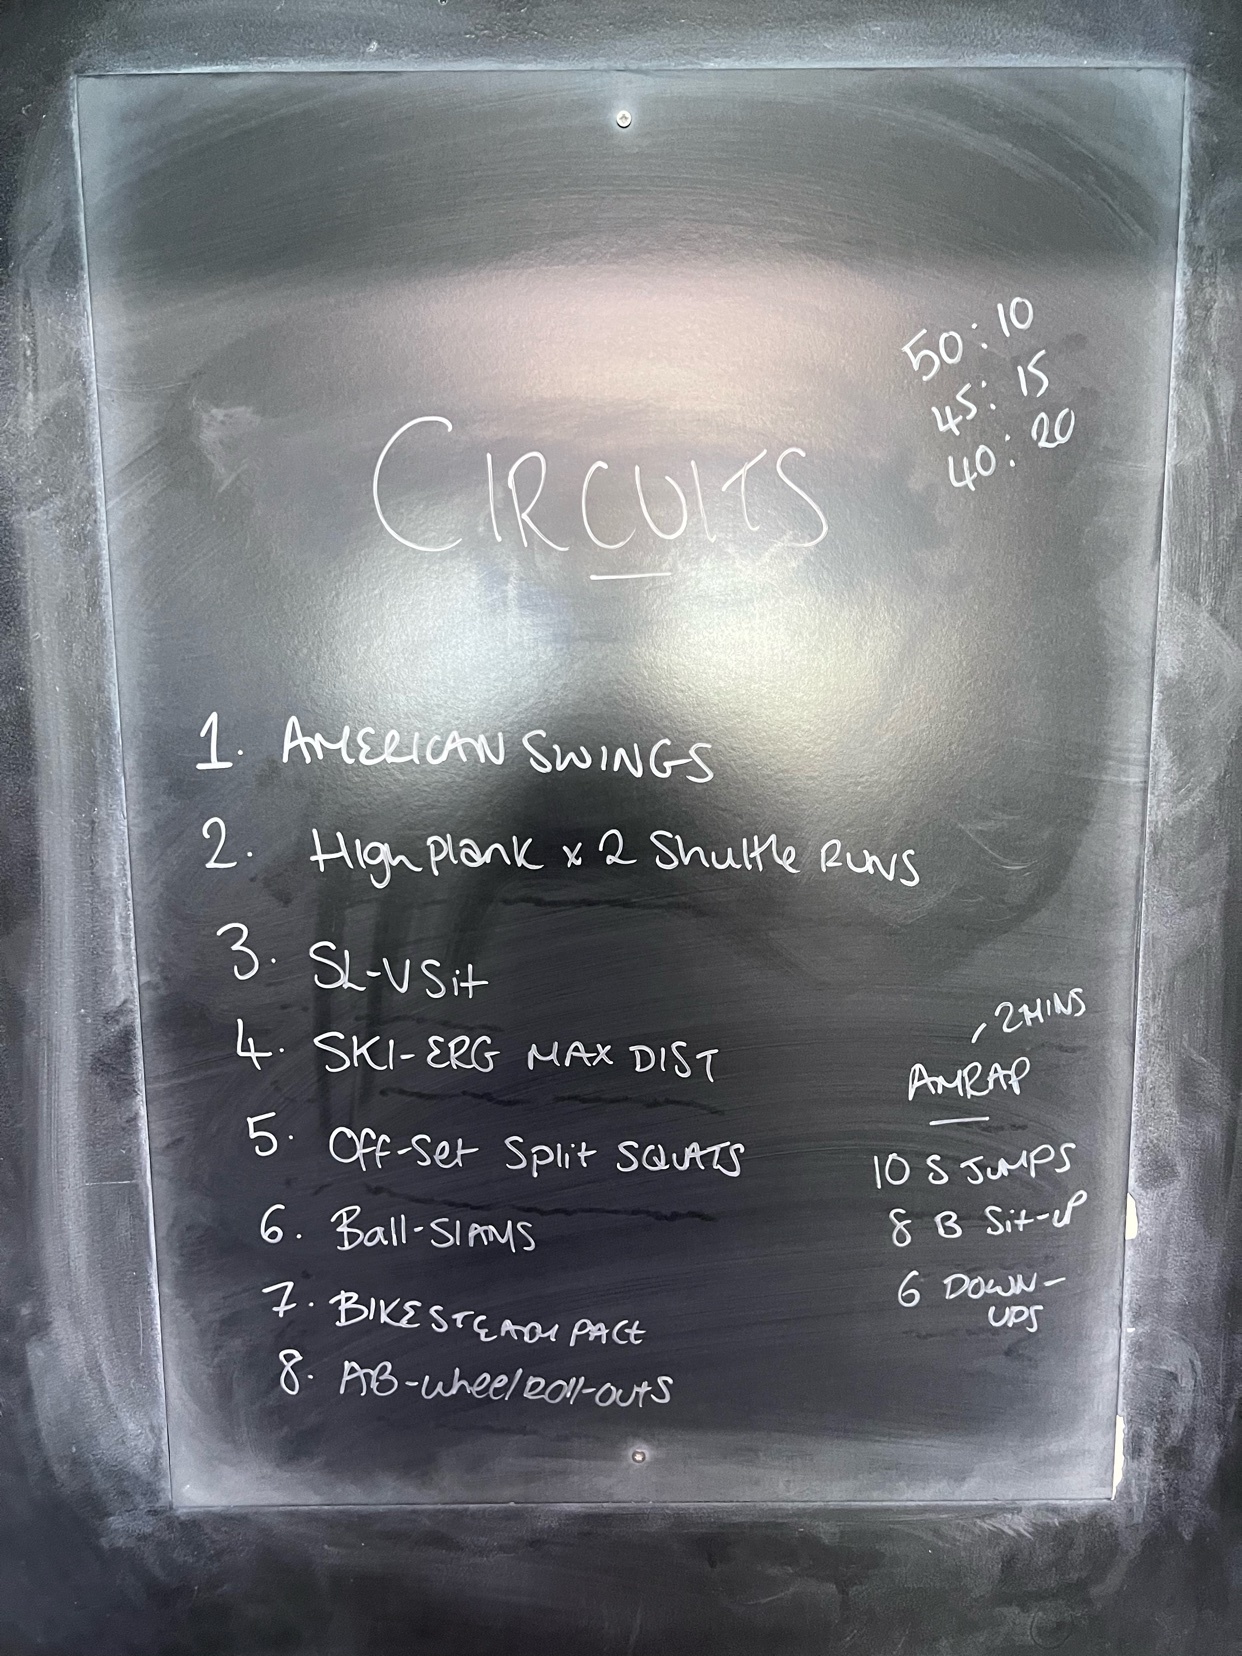 50:10
45:15
40:20
CIRCUITS
1. AMERICAN SWINGS
2. High Plank x 2 Shuttle RUNS
3. SL-V Sit
4. SKI-ERG MAX DIST
5. Off-Set Split SQUATS
6. Ball-SLAMS
7. BIKE STEADY PACE
8. AB-wheel Roll-outs
2 MINS
AMRAP
10 S JUMPS
8 B Sit-UP
6 DOWN-
UPS